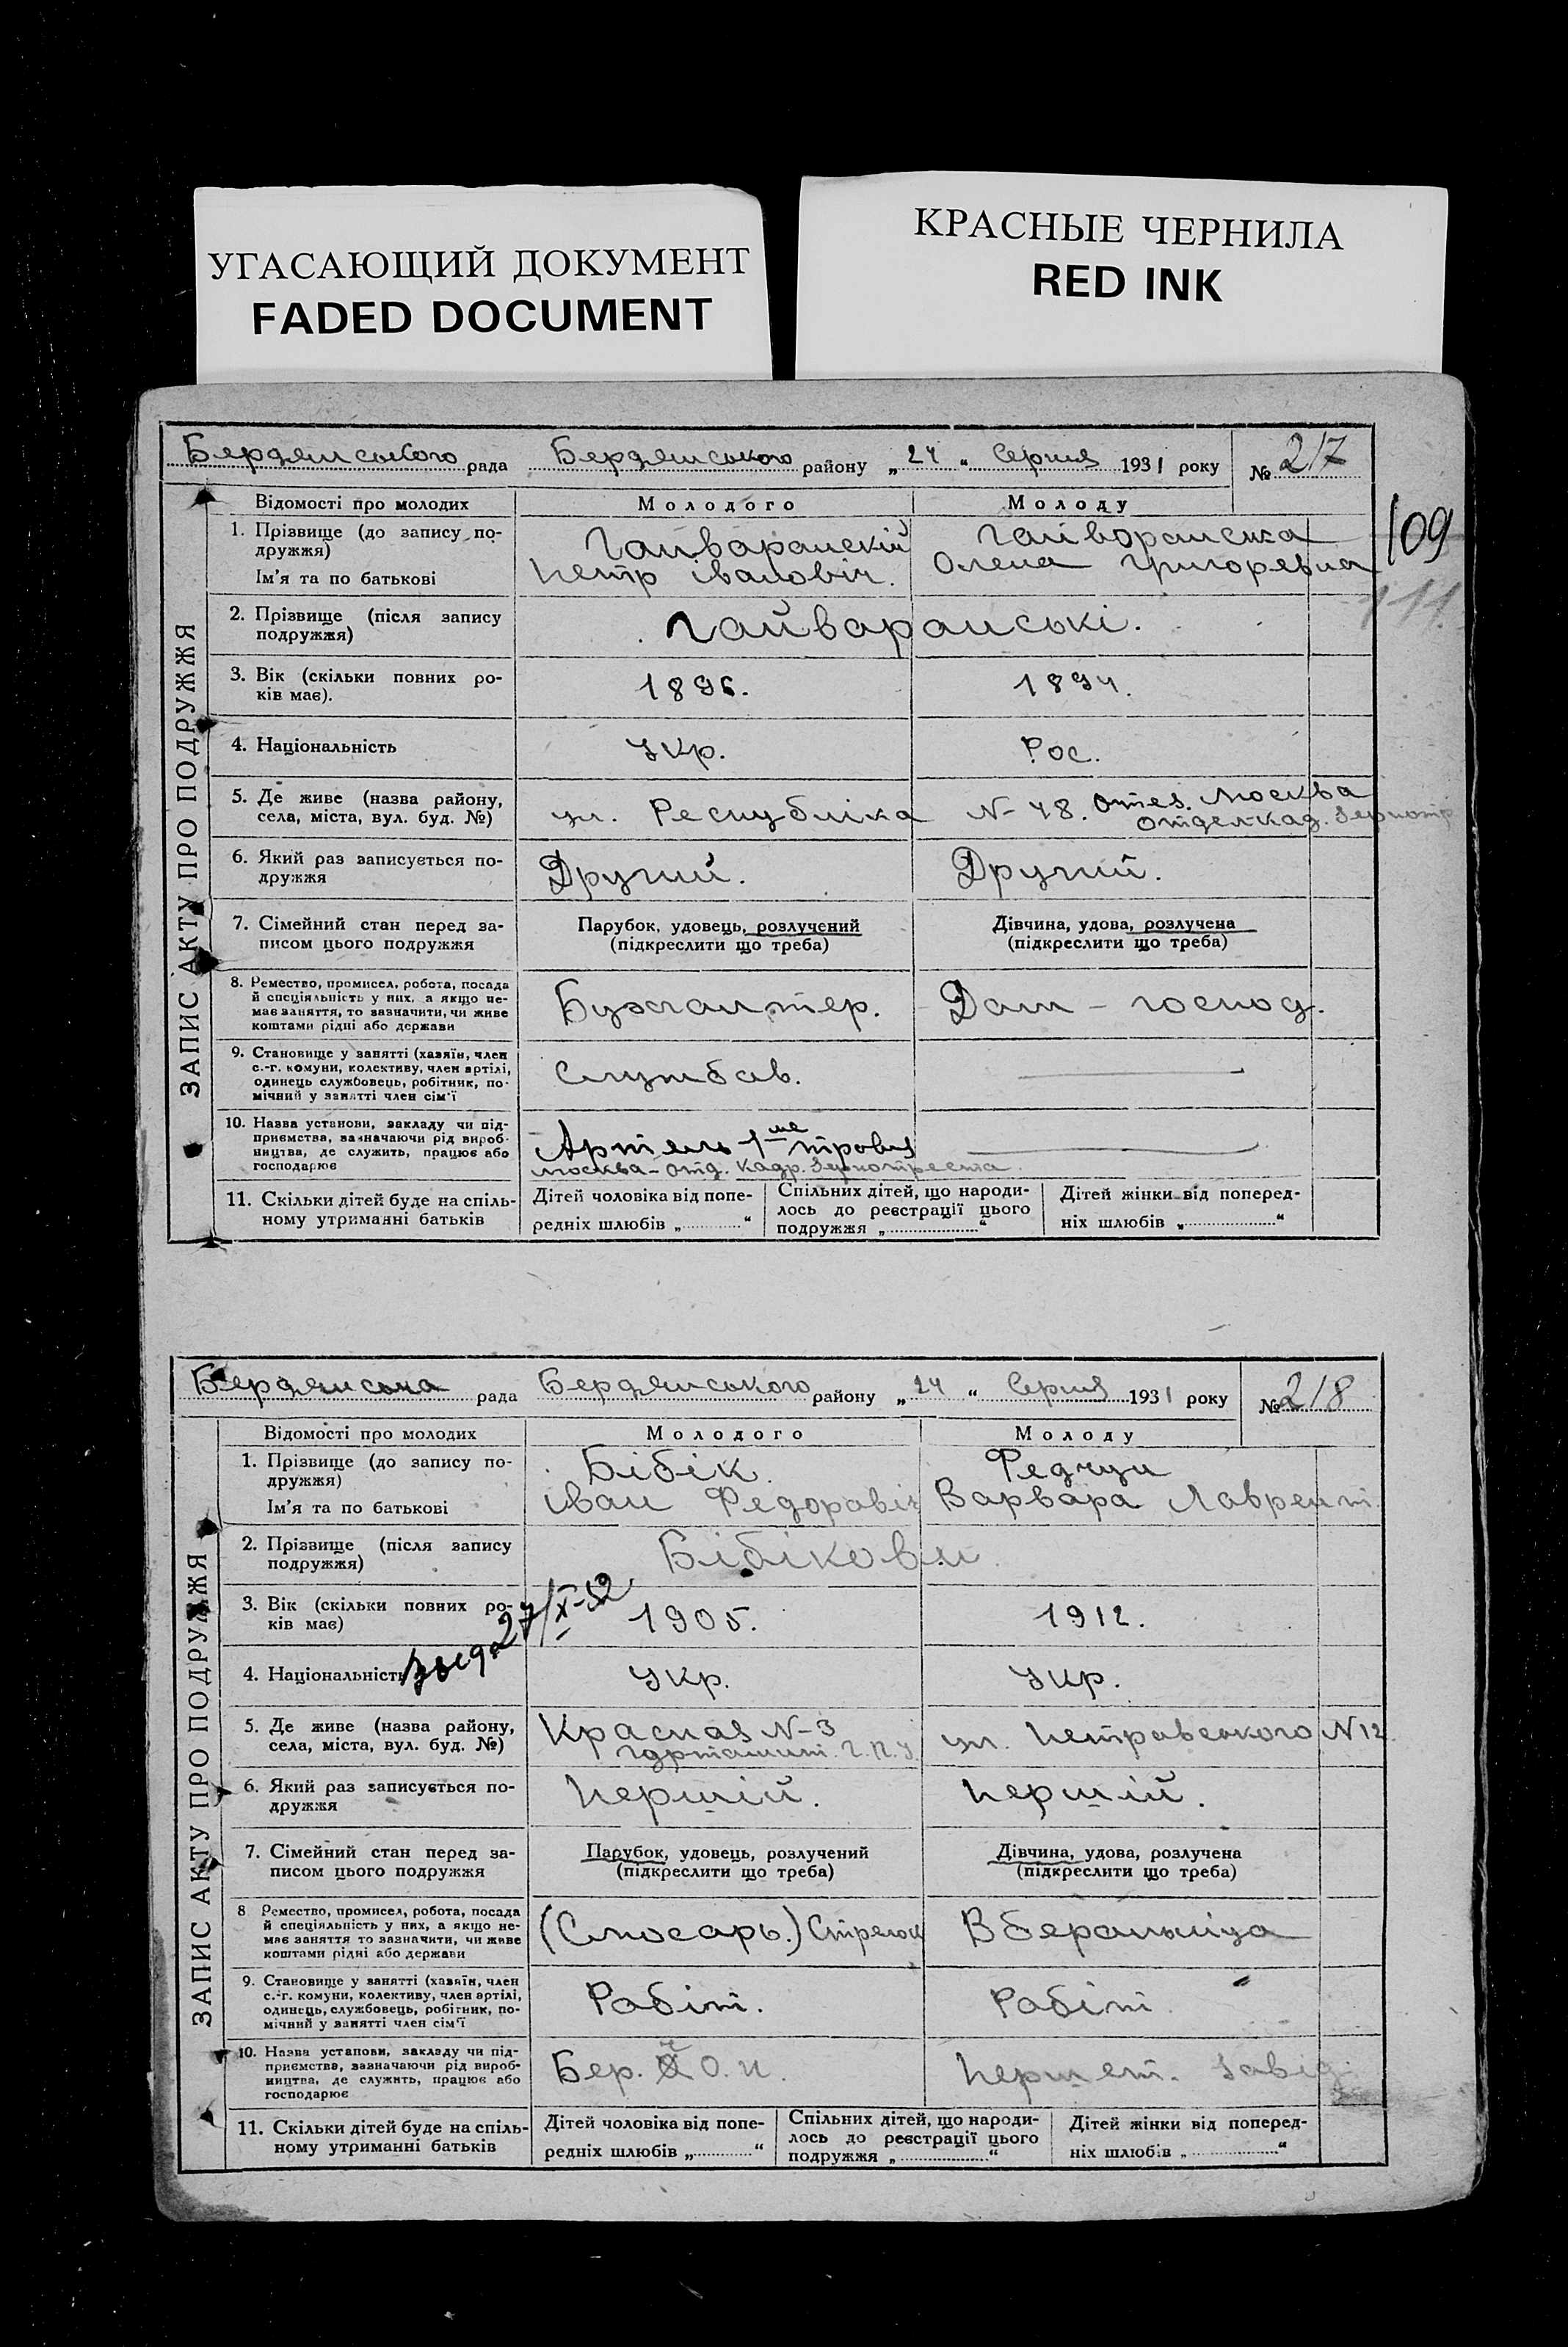 УГАСАЮЩИЙ ДОКУМЕНТ
FADED DOCUMENT
КРАСНЫЕ ЧЕРНИЛА
RED INK
Бердянського рада Бердянського району „ 24 “ Серпня 1931 року № 217
109
111.
ЗАПИС АКТУ ПРО ПОДРУЖЖЯ
Відомості про молодих Молодого Молоду
1. Прізвище (до запису по-
дружжя)
Ім'я та по батькові
Гайваранскій
Петр іванович.
Гайворанська
Олена Григоревна
2. Прізвище (після запису
подружжя)
Гайваранські.
3. Вік (скільки повних ро-
ків має).
1896. 1894.
4. Національність Укр. Рос.
5. Де живе (назва району,
села, міста, вул. буд. №)
ул. Республіка N-48. Москва
6. Який раз записується по-
дружжя
Другий. Другий.
7. Сімейний стан перед за-
писом цього подружжя
Парубок, удовець, розлучений
(підкреслити що треба)
Дівчина, удова, розлучена
(підкреслити що треба)
8. Ремество, промисел, робота, посада
й спеціяльність у них, а якщо не-
має заняття, то зазначити, чи живе
коштами рідні або держави
Бухгалтер. Дом - господ.
9. Становище у занятті (хазяїн, член
с.-г. комуни, колективу, член артілі,
одинець службовець, робітник, по-
мічний у занятті член сім'ї
Службов.
10. Назва установи, закладу чи під-
приємства, зазначаючи рід вироб-
ництва, де служить, працює або
господарює
Артель 1
Москва - Отд. Кадр. Зернотреста
11. Скільки дітей буде на спіль-
ному утриманні батьків
Дітей чоловіка від попе-
редніх шлюбів „ “
Спільних дітей, що народи-
лось до реєстрації цього
подружжя „ “
Дітей жінки від поперед-
ніх шлюбів „ “
Бердянська рада Бердянського району „ 24 “ Серпня 1931 року № 218
ЗАПИС АКТУ ПРО ПОДРУЖЖЯ
Відомості про молодих Молодого Молоду
1. Прізвище (до запису по-
дружжя)
Ім'я та по батькові
Бібік.
іван Федоравіч
Федчун
Варвара Лаврент.
2. Прізвище (після запису
подружжя)
Бібікови.
3. Вік (скільки повних ро-
ків має)
27/X-32
1905. 1912.
4. Національність Укр. Укр.
5. Де живе (назва району,
села, міста, вул. буд. №)
Красная N-3
Г.П.У.
ул. Петравського N12
6. Який раз записується по-
дружжя
Першій. Першій.
7. Сімейний стан перед за-
писом цього подружжя
Парубок, удовець, розлучений
(підкреслити що треба)
Дівчина, удова, розлучена
(підкреслити що треба)
8 Ремество, промисел, робота, посада
й спеціяльність у них, а якщо не-
має заняття то зазначити, чи живе
коштами рідні або держави
(Слюсарь.) Стрелок Вберальніца
9. Становище у занятті (хазяїн, член
с.-г. комуни, колективу, член артілі,
одинець, службовець, робітник, по-
мічний у занятті член сім'ї
Робіт. Робіт
10. Назва установи, закладу чи під-
приємства, зазначаючи рід вироб-
ництва, де служить, працює або
господарює
Бер.
Першет. Завід.
11. Скільки дітей буде на спіль-
ному утриманні батьків
Дітей чоловіка від попе-
редніх шлюбів „ “
Спільних дітей, що народи-
лось до реєстрації цього
подружжя „ “
Дітей жінки від поперед-
ніх шлюбів „ “